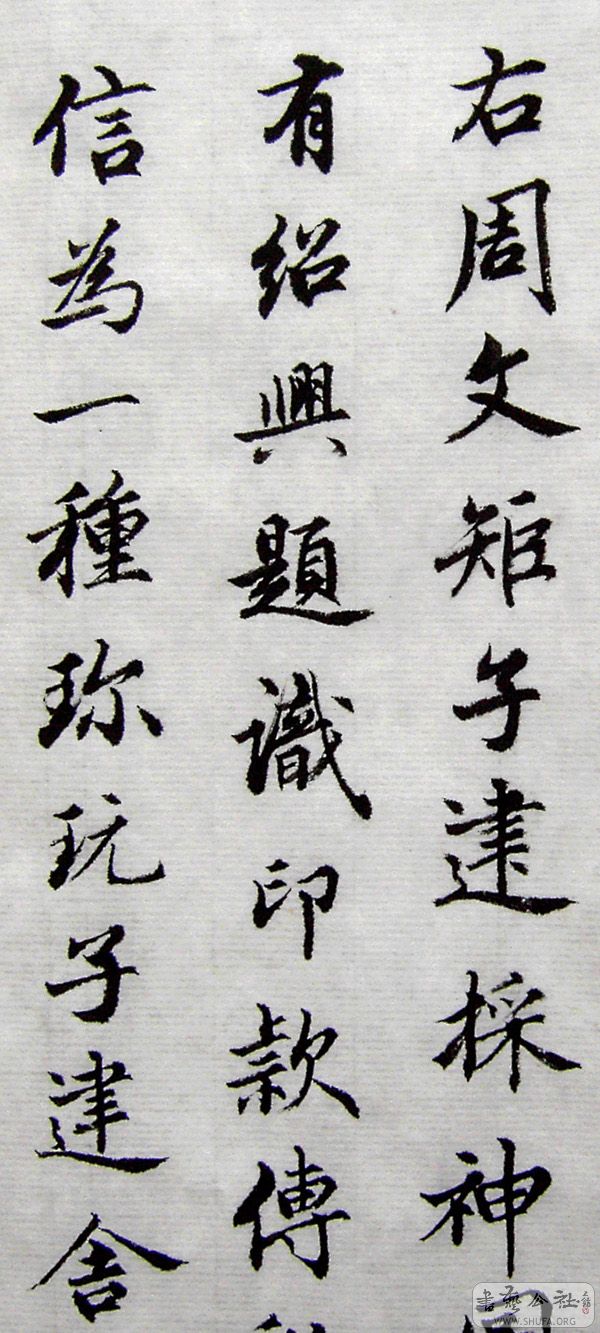 右周文矩子建採神
有紹興題識印款傳
信為一種珎玩子建舍
書藝公社
WWW.SHUFA.ORG